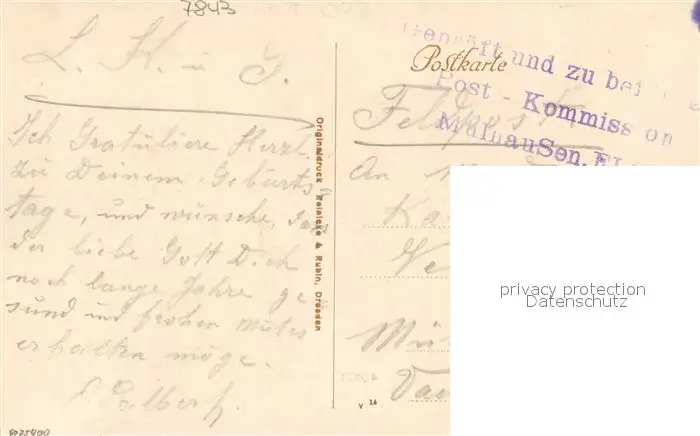 7843
L. K. u. J.
Ich Gratuliere Herzl.
zu Deinem Geburts
tage, und wünsche das
der liebe Gott Dich
noch lange Jahre ge
sund und frohen mutes
erhalten möge.
9025400
Originaldruck Reinicke & Rubin, Dresden
Postkarte
und zu bei
Post - Kommiss on
MülhauSen. El
Feldpost
An
Ka
Ve
Mü
V 16
privacy protection
Datenschutz